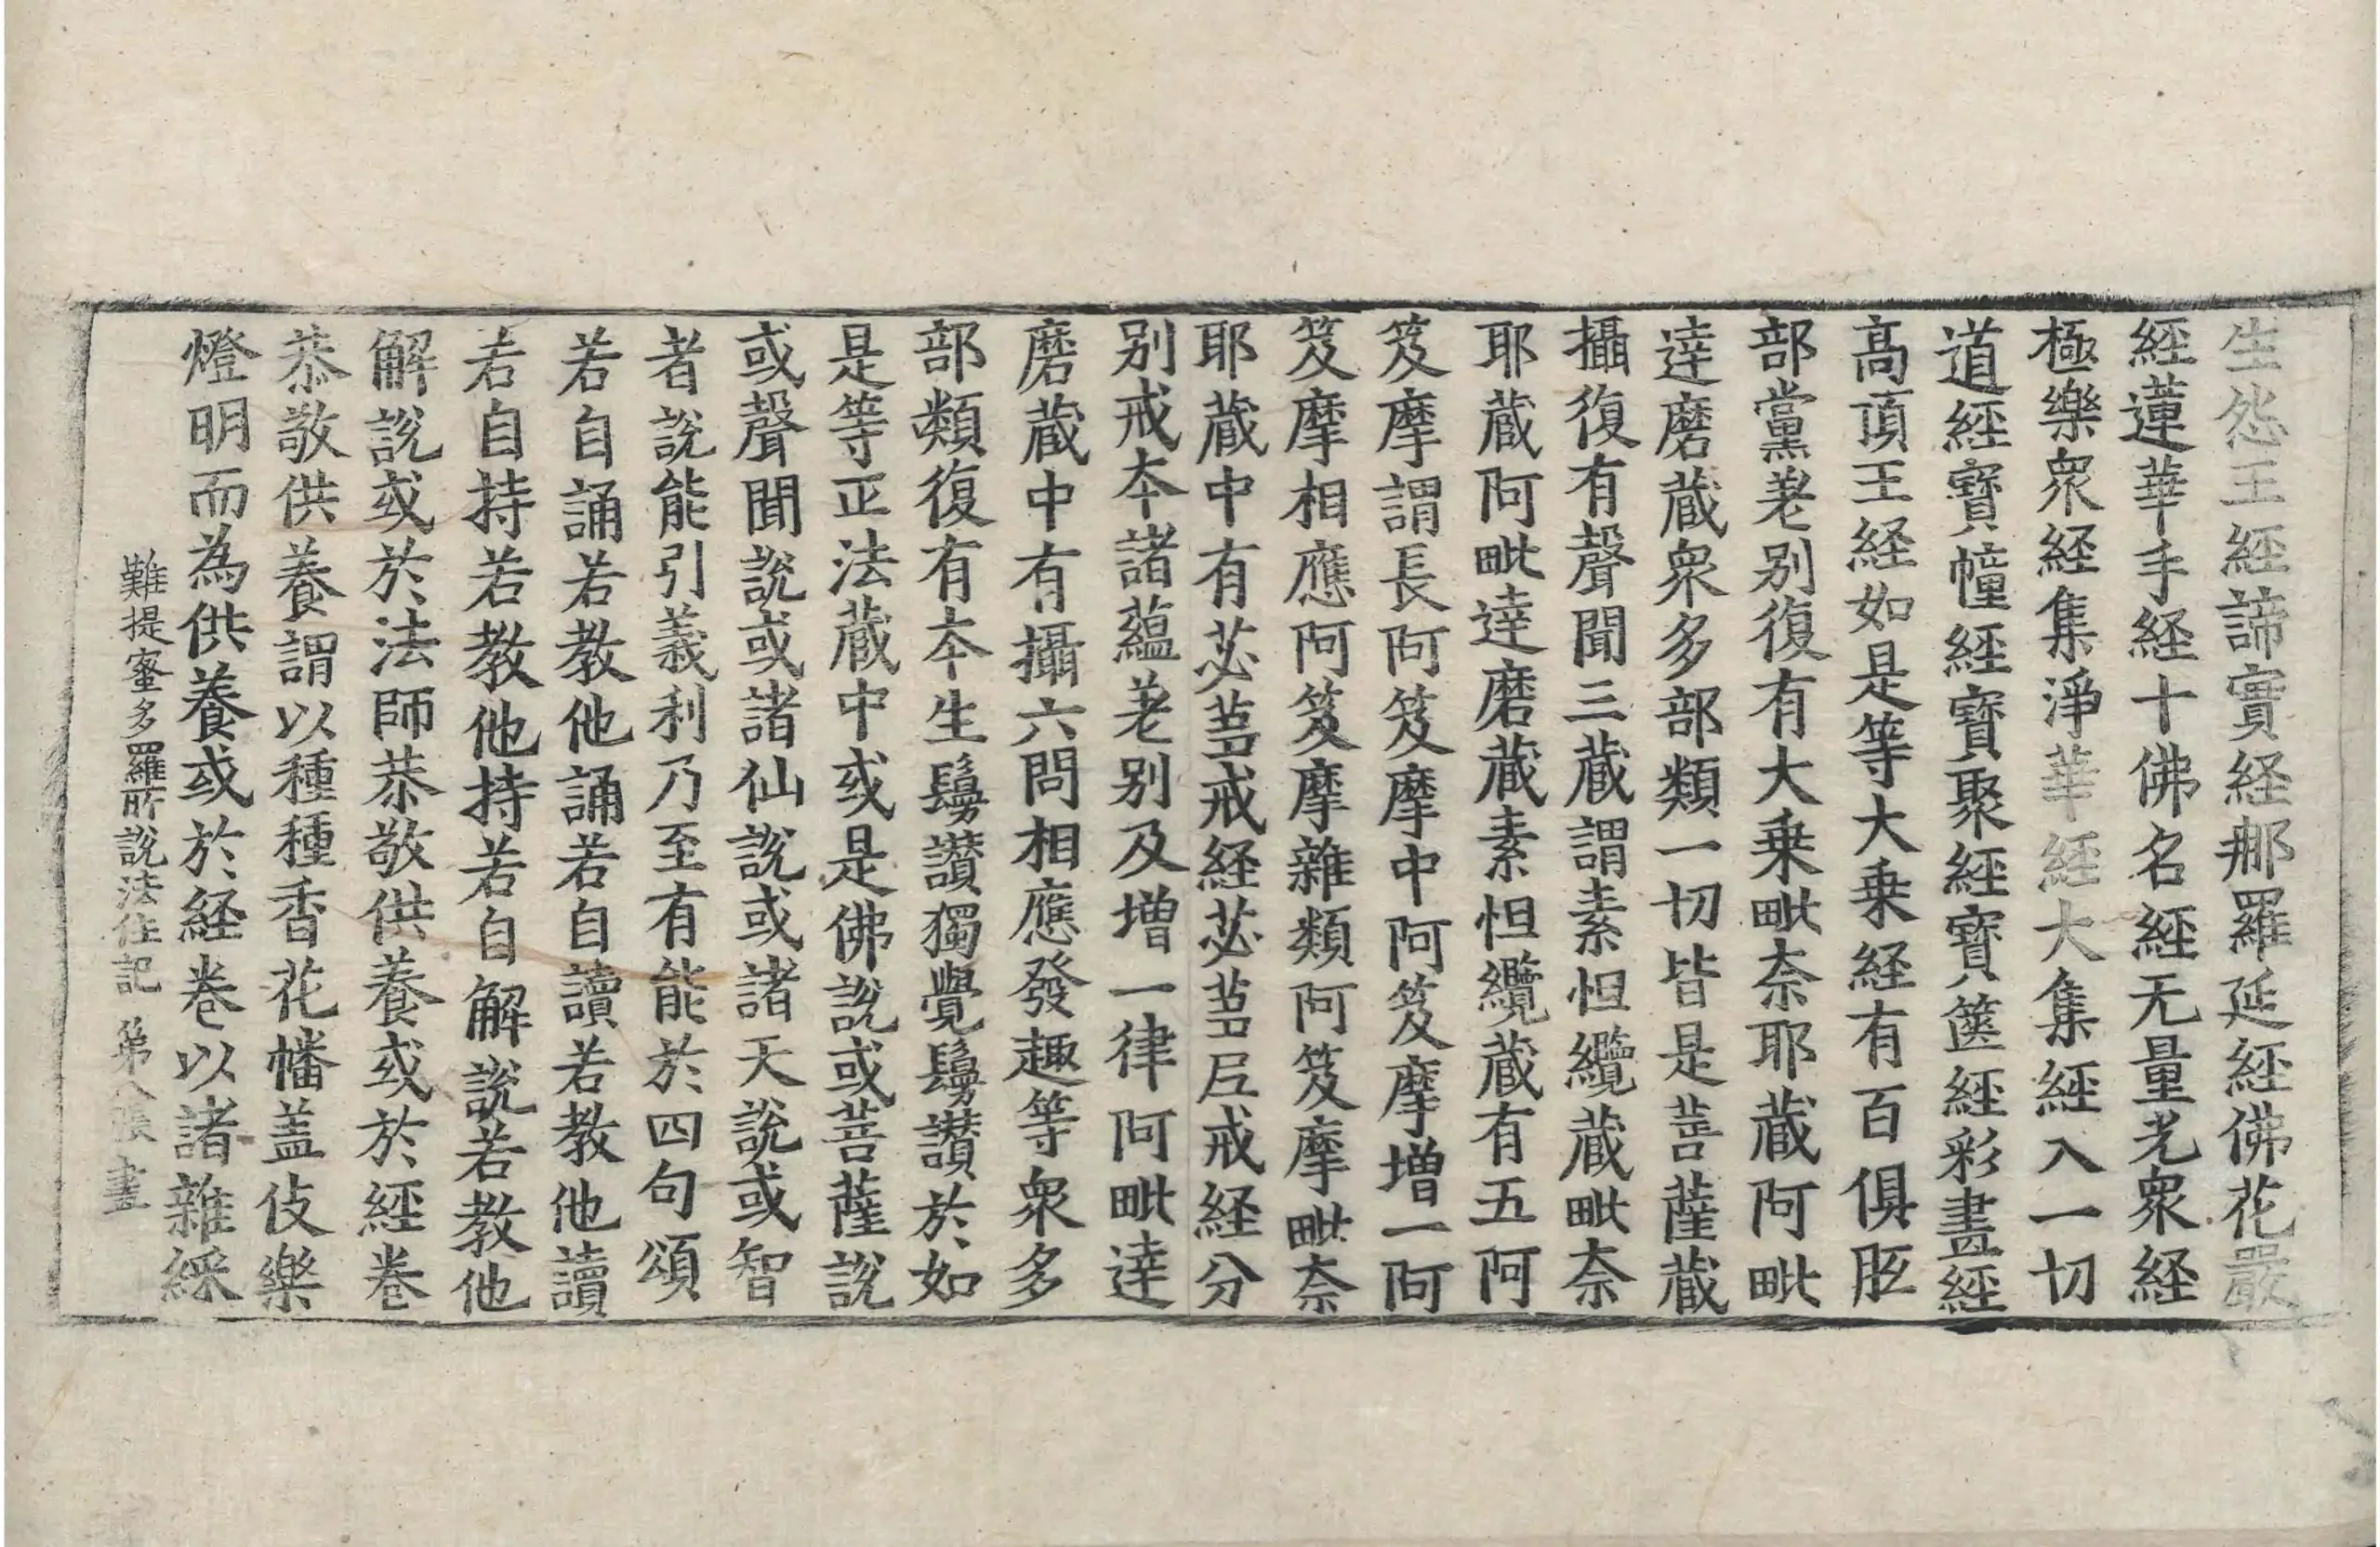 生怨王經諦實経那羅延經佛花嚴
経蓮華手経十佛名經无量光衆経
極樂衆経集淨華經大集經入一切
道經寳幢經寳聚經寳篋經彩畫經
髙頂王経如是等大乗経有百俱胝
部黨差别復有大乗毗奈耶蔵阿毗
達磨蔵衆多部類一切皆是菩薩蔵
攝復有聲聞三蔵謂素怛纜蔵毗奈
耶蔵阿毗達磨蔵素怛纜蔵有五阿
笈摩謂長阿笈摩中阿笈摩增一阿
笈摩相應阿笈摩雜類阿笈摩毗奈
耶蔵中有苾芻戒経苾芻尼戒経分
别戒本諸蘊差别及增一律阿毗達
磨蔵中有攝六問相應發趣等衆多
部類復有本生鬘讃獨覺鬘讃於如
是等正法蔵中或是佛說或菩薩說
或聲聞說或諸仙說或諸天說或智
者說能引義利乃至有能於四句頌
若自誦若教他誦若自讀若教他讀
若自持若教他持若自解說若教他
解說或於法師恭敬供養或於經卷
恭敬供養謂以種種香花幡盖伎樂
燈明而為供養或於経卷以諸雜綵
難提蜜多羅所說法住記 第八張 畫